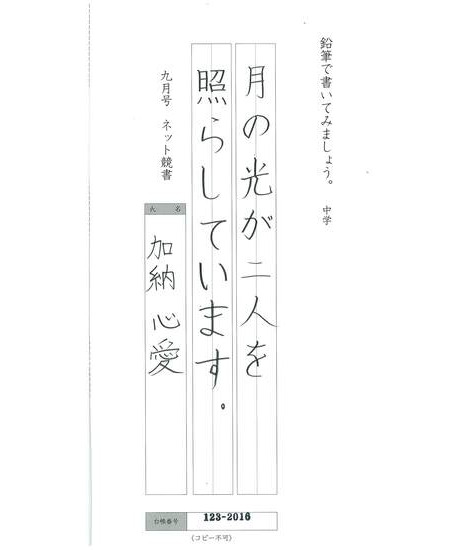 鉛筆で書いてみましょう。 中学
月の光が二人を
照らしています。
九月号 ネット競書
氏 名
加納 心愛
台帳番号
123-2016
(コピー不可)